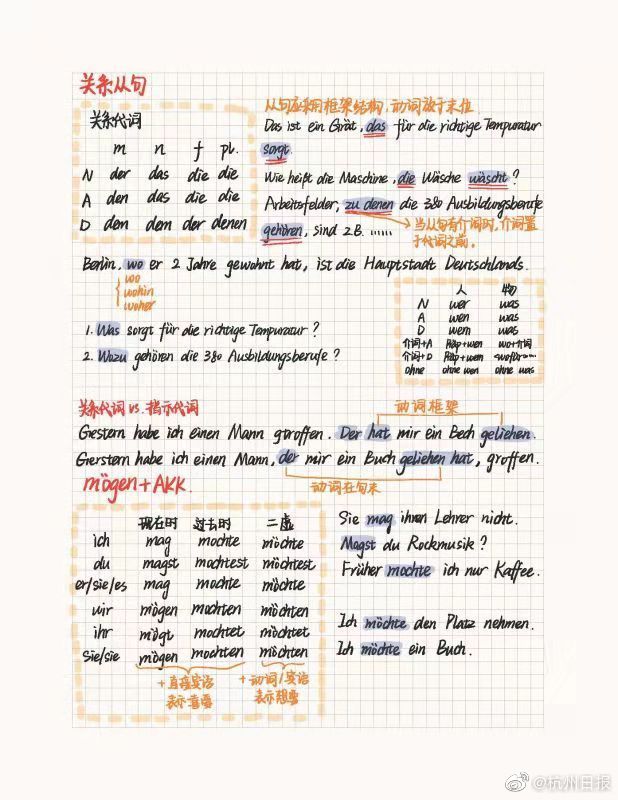 关系从句
关系代词
m n f pl.
N der das die die
A den das die die
D dem dem der denen
从句应采用框架结构，动词放于末位
Das ist ein Grät, das für die richtige Tempuratur
sorgt.
Wie heißt die Maschine, die Wäsche wäscht?
Arbeitsfelder, zu denen die 380 Ausbildungsberufe
gehören, sind z.B. ......
当从句有介词时，介词置
于代词之前。
Berlin, wo er 2 Jahre gewohnt hat, ist die Hauptstadt Deutschlands.
wo
wohin
woher
1. Was sorgt für die richtige Tempuratur?
2. Wozu gehören die 380 Ausbildungsberufe?
人 物
N wer was
A wen was
D wem was
介词+A Präp+wen wo+介词
介词+D Präp+wem wofür......
ohne ohne wen ohne was
关系代词 vs. 指示代词
动词框架
Gestern habe ich einen Mann gtroffen. Der hat mir ein Bech geliehen.
Gerstern habe ich einen Mann, der mir ein Buch geliehen hat, groffen.
动词在句末
mögen+AKK.
现在时 过去时 二虚
ich mag mochte möchte
du magst mochtest möchtest
er/sie/es mag mochte möchte
wir mögen mochten möchten
ihr mögt mochtet möchtet
sie/sie mögen mochten möchten
+直接宾语
表示喜爱
+动词/宾语
表示想要
Sie mag ihren Lehrer nicht.
Magst du Rockmusik?
Früher mochte ich nur Kaffee.
Ich möchte den Platz nehmen.
Ich möchte ein Buch.
@杭州日报